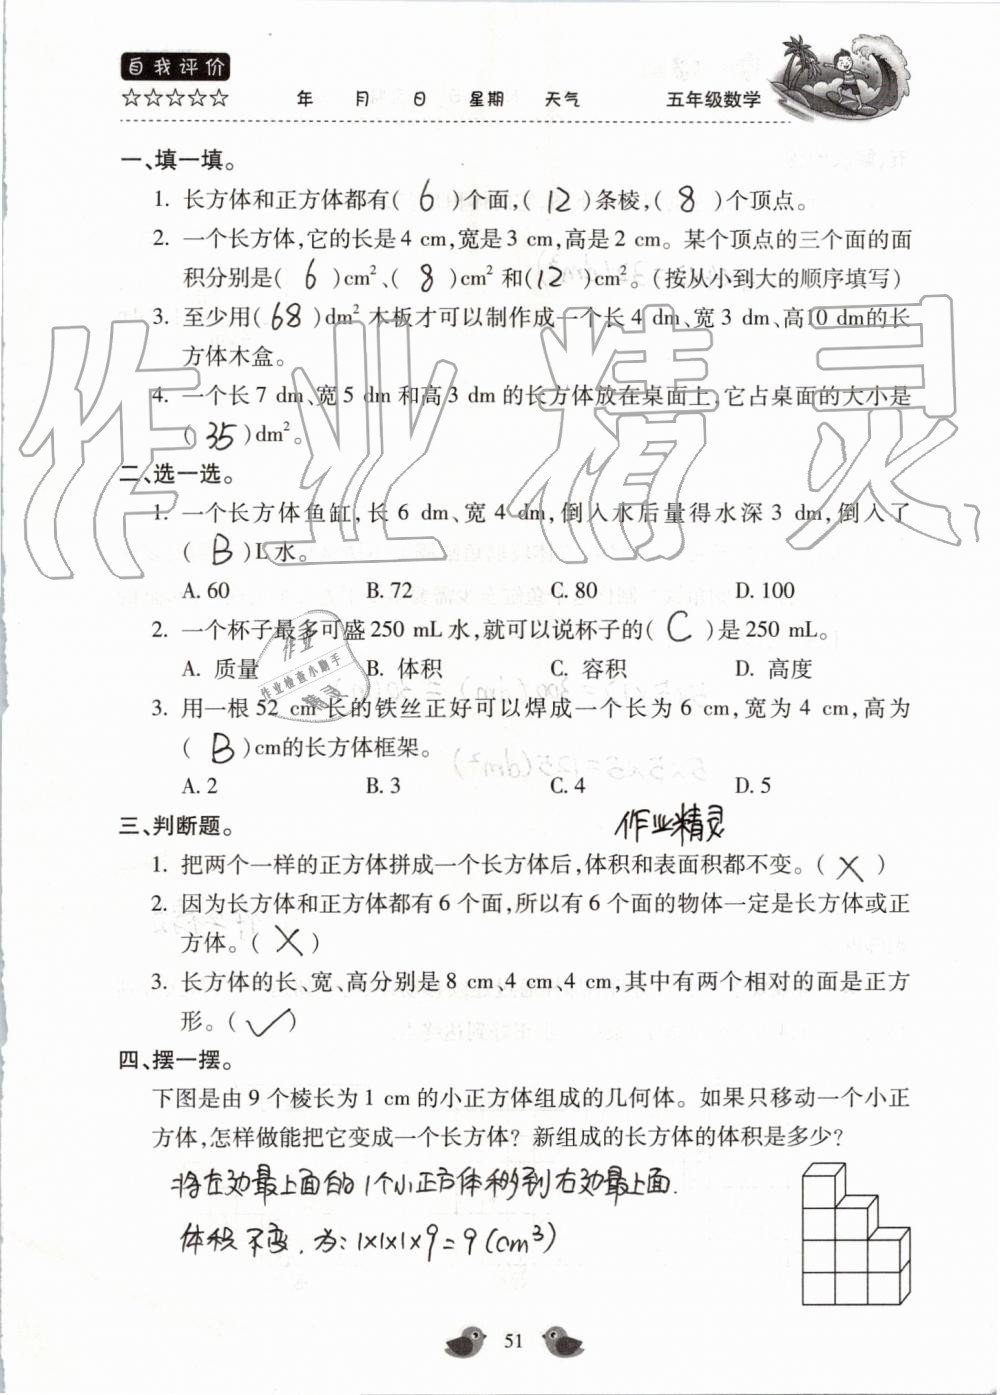 自我评价
☆☆☆☆☆ 年 月 日 星期 天气 五年级数学
一、填一填。
1. 长方体和正方体都有( 6 )个面,( 12 )条棱,( 8 )个顶点。
2. 一个长方体,它的长是4 cm,宽是3 cm,高是2 cm。某个顶点的三个面的面
积分别是( 6 )cm²、( 8 )cm²和( 12 )cm²。(按从小到大的顺序填写)
3. 至少用( 68 )dm²木板才可以制作成一个长4 dm、宽3 dm、高10 dm的长
方体木盒。
4. 一个长7 dm、宽5 dm和高3 dm的长方体放在桌面上,它占桌面的大小是
( 35 )dm²。
二、选一选。
1. 一个长方体鱼缸,长6 dm、宽4 dm,倒入水后量得水深3 dm,倒入了
( B )L水。
A. 60 B. 72 C. 80 D. 100
2. 一个杯子最多可盛250 mL水,就可以说杯子的( C )是250 mL。
A. 质量 B. 体积 C. 容积 D. 高度
3. 用一根52 cm长的铁丝正好可以焊成一个长为6 cm,宽为4 cm,高为
( B )cm的长方体框架。
A. 2 B. 3 C. 4 D. 5
三、判断题。 作业精灵
1. 把两个一样的正方体拼成一个长方体后,体积和表面积都不变。( × )
2. 因为长方体和正方体都有6个面,所以有6个面的物体一定是长方体或正
方体。( × )
3. 长方体的长、宽、高分别是8 cm、4 cm、4 cm,其中有两个相对的面是正方
形。( ✓ )
四、摆一摆。
下图是由9个棱长为1 cm的小正方体组成的几何体。如果只移动一个小正
方体,怎样做能把它变成一个长方体?新组成的长方体的体积是多少?
将左边最上面的1个小正方体移到右边最上面.
体积不变,为:1×1×1×9=9(cm³)
51
作业精灵
作业
作业检查小助手